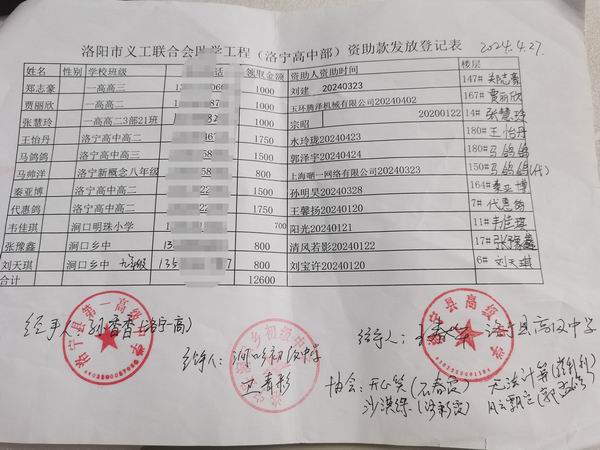 洛阳市义工联合会助学工程（洛宁高中部）资助款发放登记表 2024.4.27.
姓名 性别 学校班级 话 领取金额 资助人资助时间 楼层
郑志豪 一高高三 1000 刘建 20240323 147#
贾丽欣 一高高二 1000 玉环腾泽机械有限公司20240402 167# 贾丽欣
张慧玲 一高高二3部21班 1000 宗昭 20200122 14# 张慧玲
王怡丹 洛宁高中高二 1750 水玲珑20240423 180# 王怡丹
马鸽鸽 洛宁高中高三 1500 郭泽宇20240424 180# 马鸽鸽
马帅洋 洛宁新概念八年级 800 上海晒一网络有限公司20240323 150# 马鸽鸽(代)
秦亚博 洛宁高中高二 1500 孙明昊20240328 164# 秦亚博
代惠鸽 洛宁高中高二 1750 王馨扬20240120 7# 代惠鸽
韦佳琪 涧口明珠小学 700 阳光20240121 11# 韦佳琪
张豫鑫 涧口乡中 800 清风若影20240122 17# 张豫鑫
刘天琪 涧口乡中 九年级 800 刘宝许20240120 6# 刘天琪
合计 12600
经手人: 孙香香(洛宁一高)
洛宁县第一高级中学
经手人: 涧口乡初级中学
乡初级中学
经手人: 洛宁县高级中学
洛宁县高级中学
协会: 开心笑(石春霞) 无法计算
沙淇绿